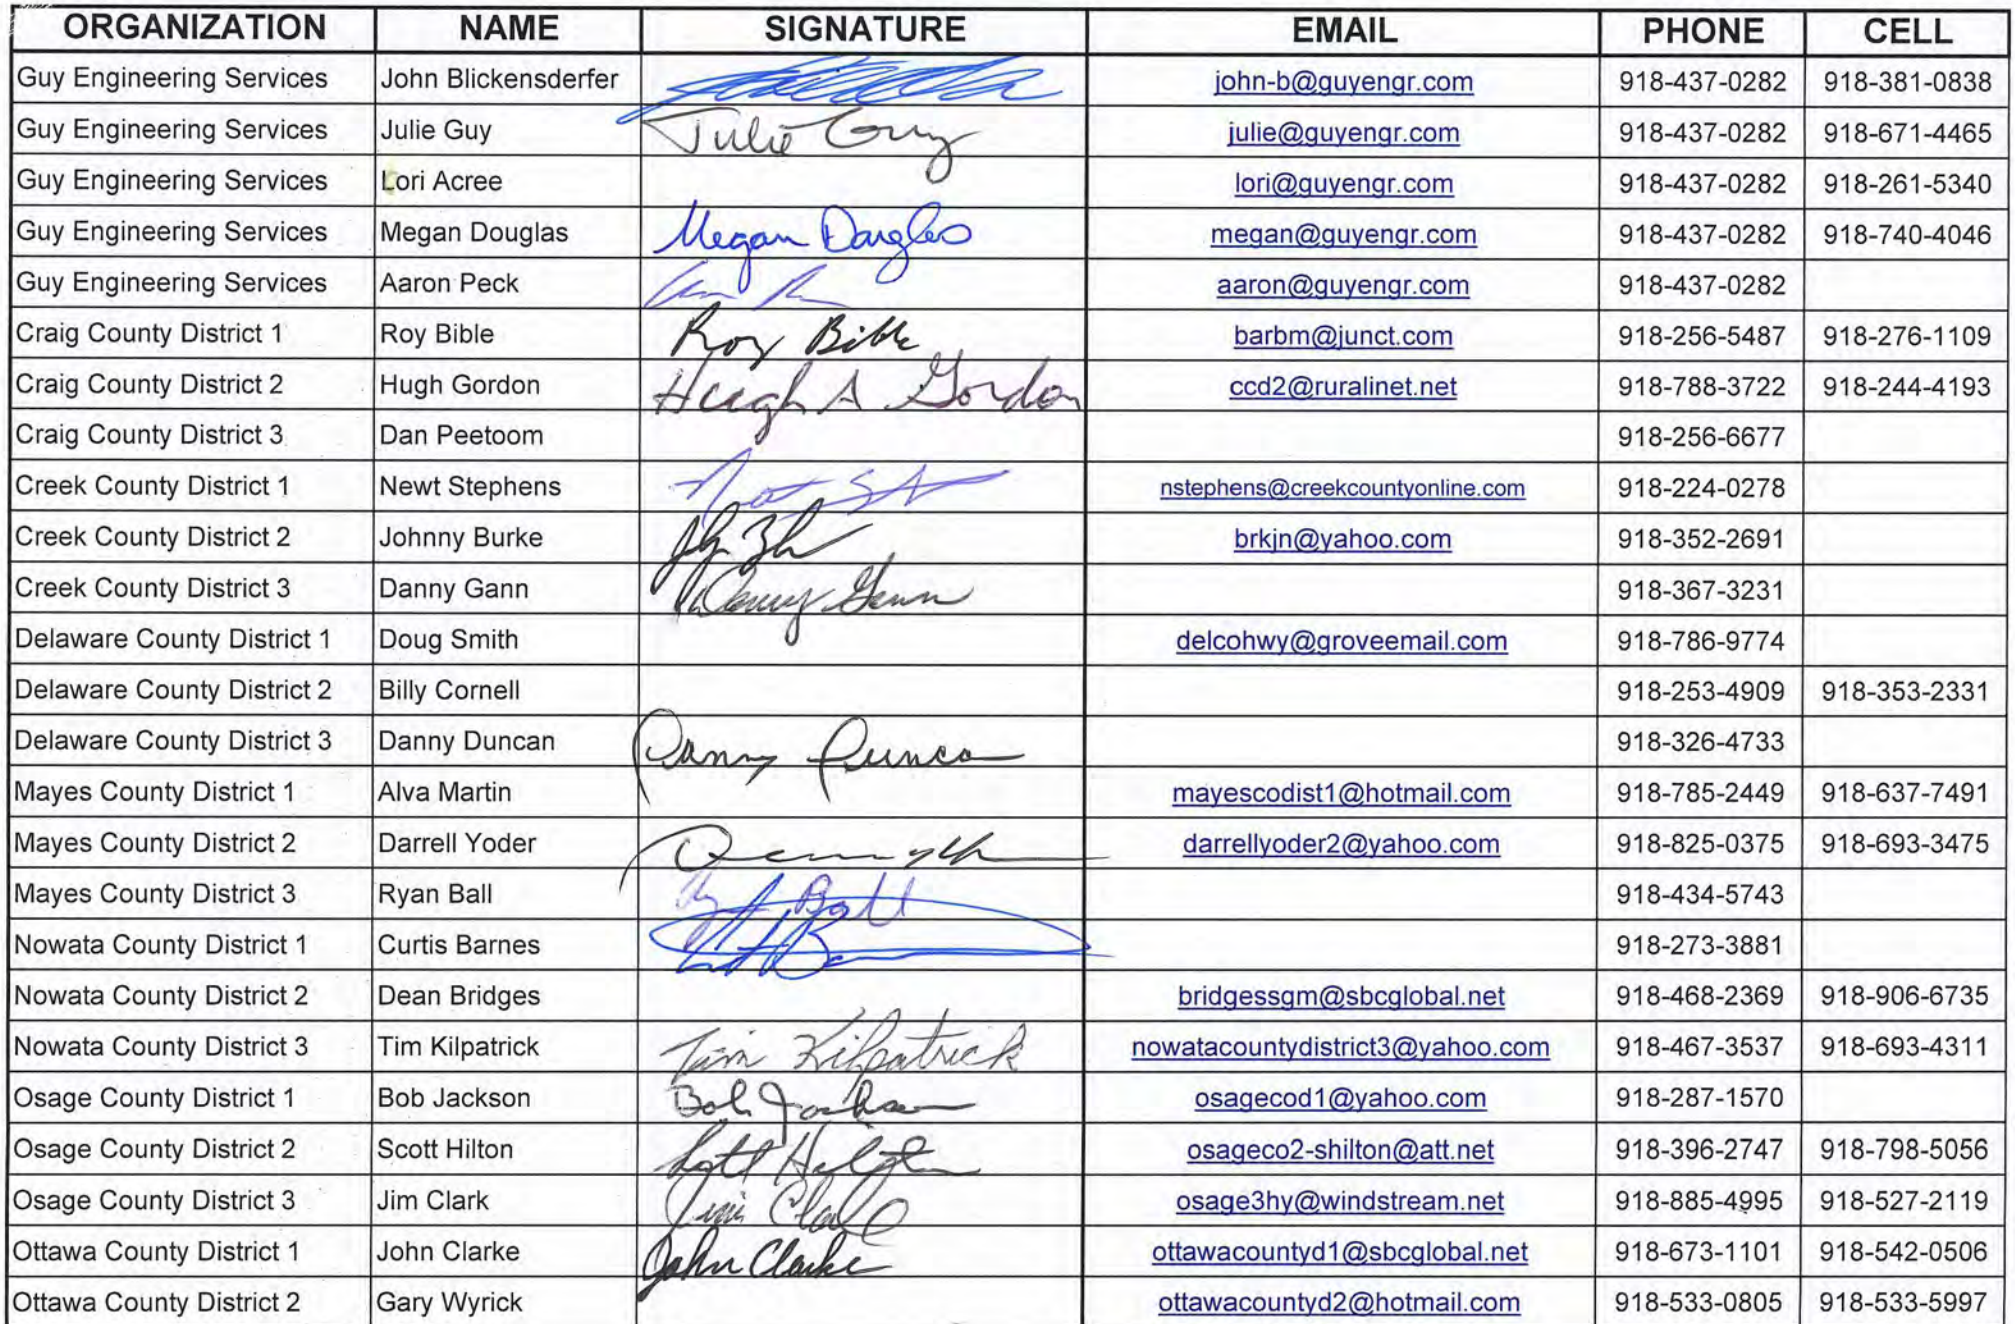 ORGANIZATION NAME SIGNATURE EMAIL PHONE CELL
Guy Engineering Services John Blickensderfer john-b@guyengr.com 918-437-0282 918-381-0838
Guy Engineering Services Julie Guy Julie Guy julie@guyengr.com 918-437-0282 918-671-4465
Guy Engineering Services Lori Acree lori@guyengr.com 918-437-0282 918-261-5340
Guy Engineering Services Megan Douglas Megan Douglas megan@guyengr.com 918-437-0282 918-740-4046
Guy Engineering Services Aaron Peck aaron@guyengr.com 918-437-0282
Craig County District 1 Roy Bible Roy Bible barbm@junct.com 918-256-5487 918-276-1109
Craig County District 2 Hugh Gordon Hugh A Gordon ccd2@ruralinet.net 918-788-3722 918-244-4193
Craig County District 3 Dan Peetoom 918-256-6677
Creek County District 1 Newt Stephens nstephens@creekcountyonline.com 918-224-0278
Creek County District 2 Johnny Burke brkjn@yahoo.com 918-352-2691
Creek County District 3 Danny Gann Danny Gann 918-367-3231
Delaware County District 1 Doug Smith delcohwy@groveemail.com 918-786-9774
Delaware County District 2 Billy Cornell 918-253-4909 918-353-2331
Delaware County District 3 Danny Duncan Danny Duncan 918-326-4733
Mayes County District 1 Alva Martin mayescodist1@hotmail.com 918-785-2449 918-637-7491
Mayes County District 2 Darrell Yoder darrellyoder2@yahoo.com 918-825-0375 918-693-3475
Mayes County District 3 Ryan Ball Ball 918-434-5743
Nowata County District 1 Curtis Barnes 918-273-3881
Nowata County District 2 Dean Bridges bridgessgm@sbcglobal.net 918-468-2369 918-906-6735
Nowata County District 3 Tim Kilpatrick Tim Kilpatrick nowatacountydistrict3@yahoo.com 918-467-3537 918-693-4311
Osage County District 1 Bob Jackson Bob Jackson osagecod1@yahoo.com 918-287-1570
Osage County District 2 Scott Hilton Scott Hilton osageco2-shilton@att.net 918-396-2747 918-798-5056
Osage County District 3 Jim Clark Jim Clark osage3hy@windstream.net 918-885-4995 918-527-2119
Ottawa County District 1 John Clarke John Clarke ottawacountyd1@sbcglobal.net 918-673-1101 918-542-0506
Ottawa County District 2 Gary Wyrick ottawacountyd2@hotmail.com 918-533-0805 918-533-5997